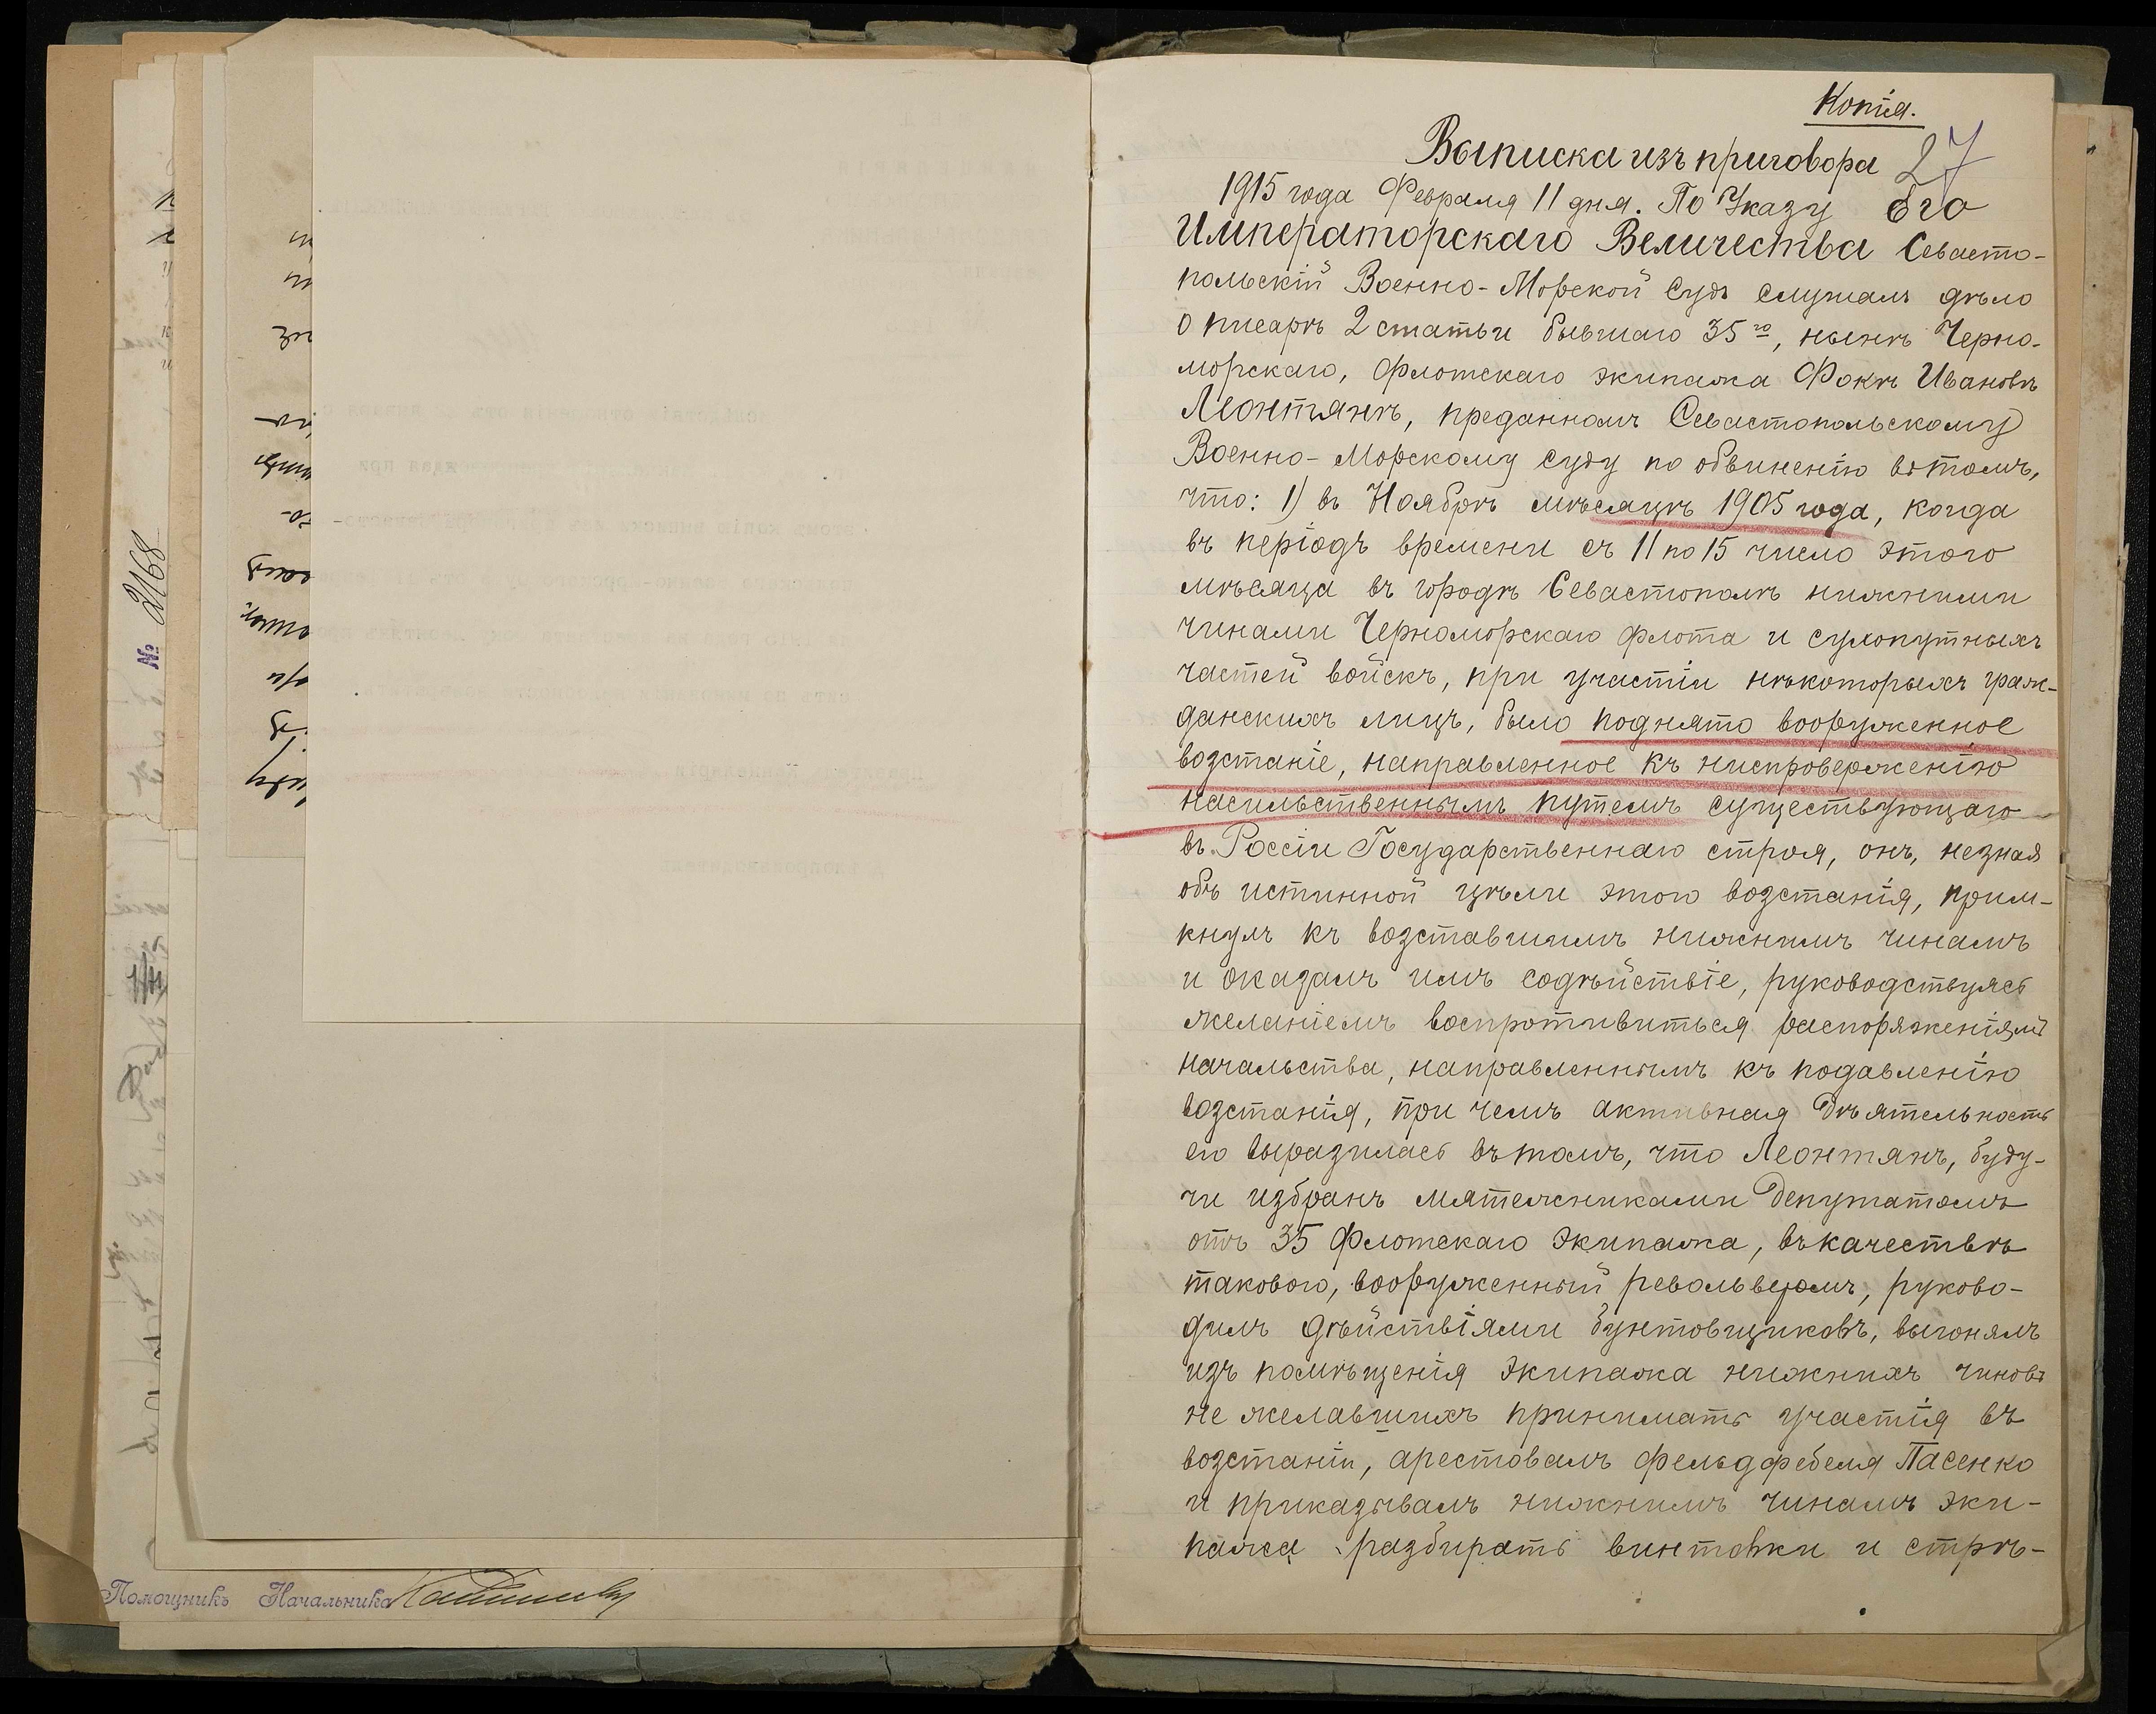 № 2168
Помощникъ Начальника
Копія.
27
Выписка изъ приговора
1915 года Февраля 11 дня. По Указу Его
Императорскаго Величества Севасто-
польскій Военно-Морской Судъ слушалъ дѣло
о писарѣ 2 статьи бывшаго 35го, нынѣ Черно-
морскаго, флотскаго экипажа Фокѣ Ивановѣ
Леонтянѣ, преданномъ Севастопольскому
Военно-Морскому Суду по обвиненію въ томъ,
что: 1) въ Ноябрѣ мѣсяцѣ 1905 года, когда
въ періодъ времени съ 11 по 15 число этого
мѣсяца въ городѣ Севастополѣ нижними
чинами Черноморскаго флота и сухопутныхъ
частей войскъ, при участіи нѣкоторыхъ граж-
данскихъ лицъ, было поднято вооруженное
возстаніе, направленное къ ниспроверженію
насильственнымъ путемъ существующаго
въ Россіи Государственнаго строя, онъ, не зная
объ истинной цѣли этого возстанія, прим-
кнулъ къ возставшимъ нижнимъ чинамъ
и оказалъ имъ содѣйствіе, руководствуясь
желаніемъ воспротивиться распоряженіямъ
начальства, направленнымъ къ подавленію
возстанія, при чемъ активная дѣятельность
его выразилась въ томъ, что Леонтянъ, буду-
чи избранъ мятежниками депутатомъ
отъ 35 флотскаго экипажа, въ качествѣ
такового, вооруженный револьверомъ, руково-
дилъ дѣйствіями бунтовщиковъ, выгонялъ
изъ помѣщенія экипажа нижнихъ чиновъ
не желавшихъ принимать участія въ
возстаніи, арестовалъ фельдфебеля Пасенко
и приказывалъ нижнимъ чинамъ эки-
пажа разбирать винтовки и стрѣ-